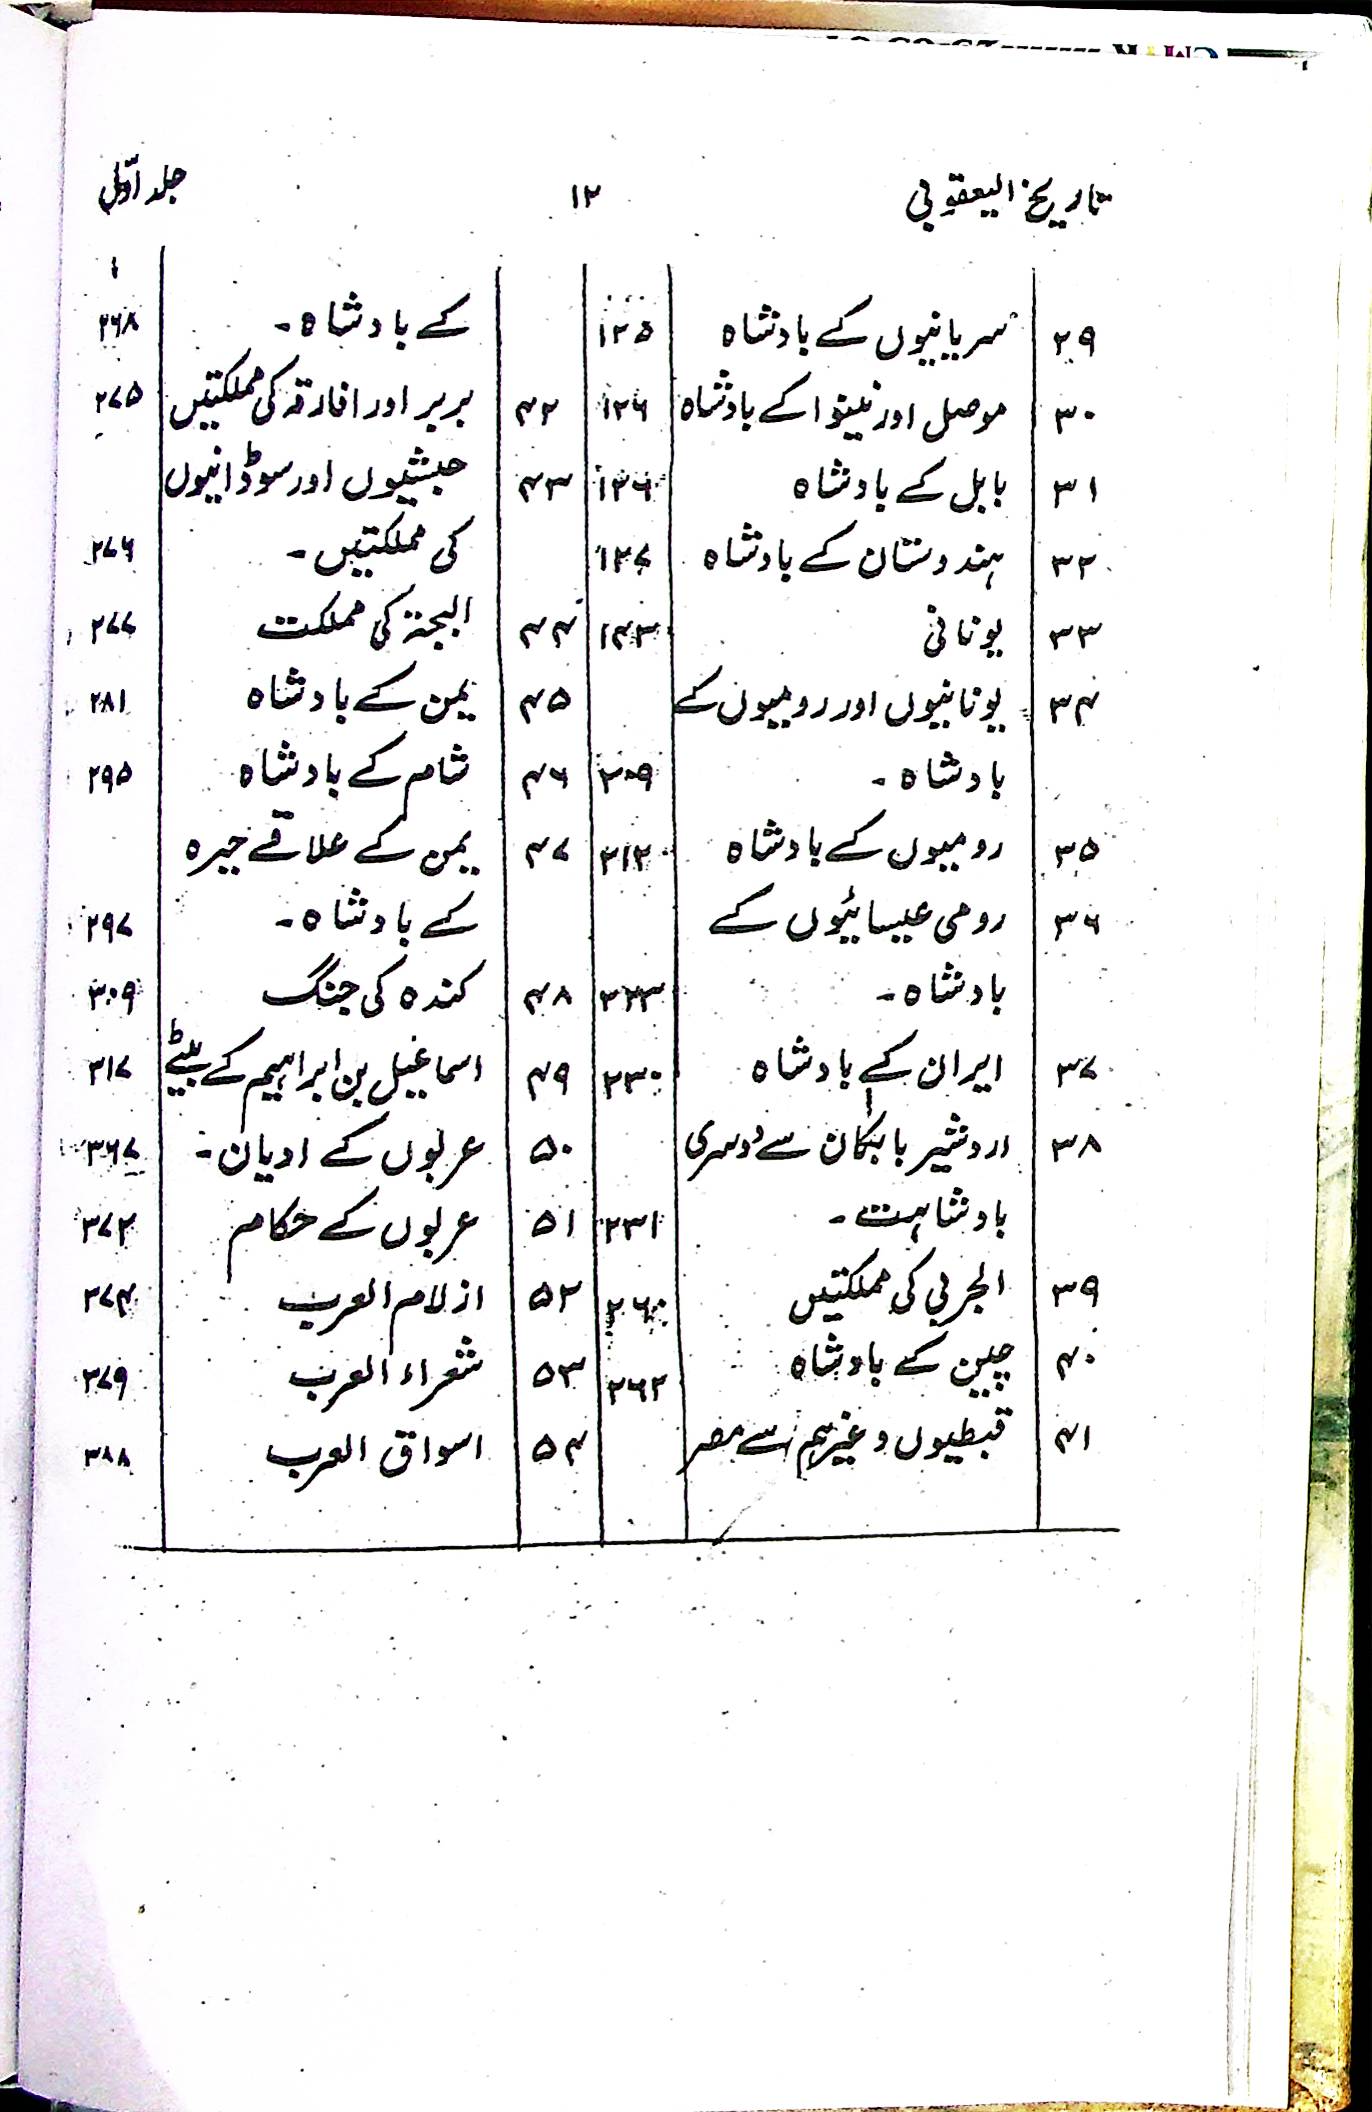 تاریخ الیعقوبی ۱۲ جلد اوّل
۲۹ سریانیوں کے بادشاہ ۱۲۵
۳۰ موصل اور نینوا کے بادشاہ ۱۲۶
۳۱ بابل کے بادشاہ ۱۲۶
۳۲ ہندوستان کے بادشاہ ۱۲۷
۳۳ یونانی ۱۴۳
۳۴ یونانیوں اور رومیوں کے
بادشاہ۔ ۲۰۹
۳۵ رومیوں کے بادشاہ ۲۱۲
۳۶ رومی عیسائیوں کے
بادشاہ۔ ۲۲۳
۳۷ ایران کے بادشاہ ۲۳۰
۳۸ اردشیر بابکان سے دوسری
بادشاہت۔ ۲۳۱
۳۹ الجربی کی مملکتیں ۲۶۰
۴۰ چین کے بادشاہ ۲۶۲
۴۱ قبطیوں وغیرہم سے مصر
کے بادشاہ۔ ۲۶۸
۴۲ بربر اور افارقہ کی مملکتیں ۲۷۵
۴۳ حبشیوں اور سوڈانیوں
کی مملکتیں۔ ۲۷۶
۴۴ البجتہ کی مملکت ۲۷۷
۴۵ یمن کے بادشاہ ۲۸۱
۴۶ شام کے بادشاہ ۲۹۵
۴۷ یمن کے علاقے حیرہ
کے بادشاہ۔ ۲۹۷
۴۸ کندہ کی جنگ ۳۰۹
۴۹ اسماعیل بن ابراہیم کے بیٹے ۳۱۷
۵۰ عربوں کے ادیان۔ ۳۶۷
۵۱ عربوں کے حکام ۳۷۲
۵۲ ازلام العرب ۳۷۴
۵۳ شعراء العرب ۳۷۹
۵۴ اسواق العرب ۳۸۸